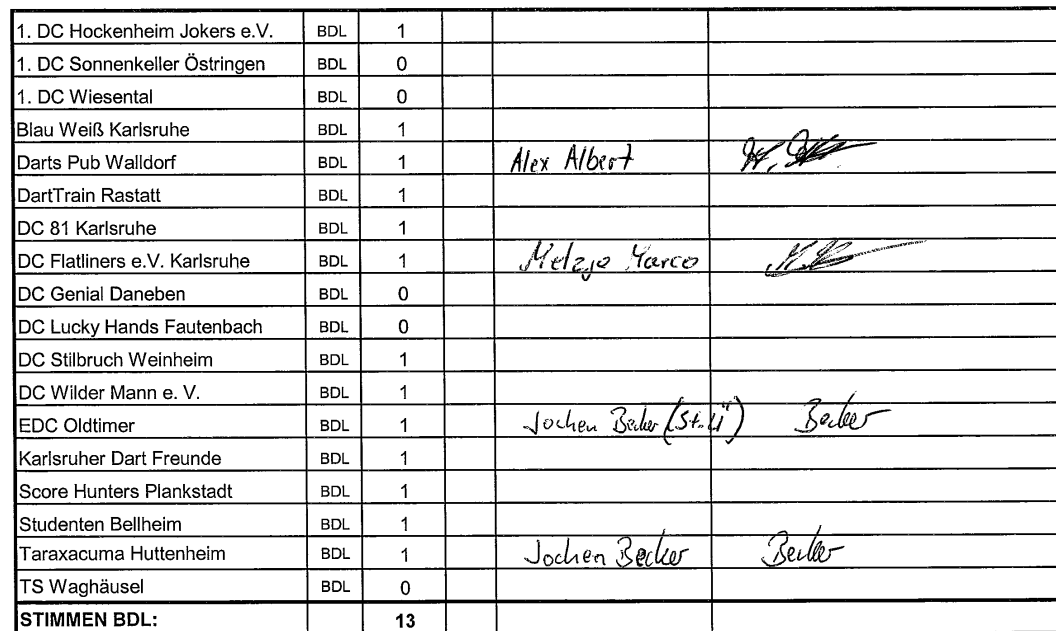 1. DC Hockenheim Jokers e.V. BDL 1
1. DC Sonnenkeller Östringen BDL 0
1. DC Wiesental BDL 0
Blau Weiß Karlsruhe BDL 1
Darts Pub Walldorf BDL 1 Alex Albert
DartTrain Rastatt BDL 1
DC 81 Karlsruhe BDL 1
DC Flatliners e.V. Karlsruhe BDL 1 Marco
DC Genial Daneben BDL 0
DC Lucky Hands Fautenbach BDL 0
DC Stilbruch Weinheim BDL 1
DC Wilder Mann e. V. BDL 1
EDC Oldtimer BDL 1 Jochen Becker Becker
Karlsruher Dart Freunde BDL 1
Score Hunters Plankstadt BDL 1
Studenten Bellheim BDL 1
Taraxacuma Huttenheim BDL 1 Jochen Becker Becker
TS Waghäusel BDL 0
STIMMEN BDL: 13